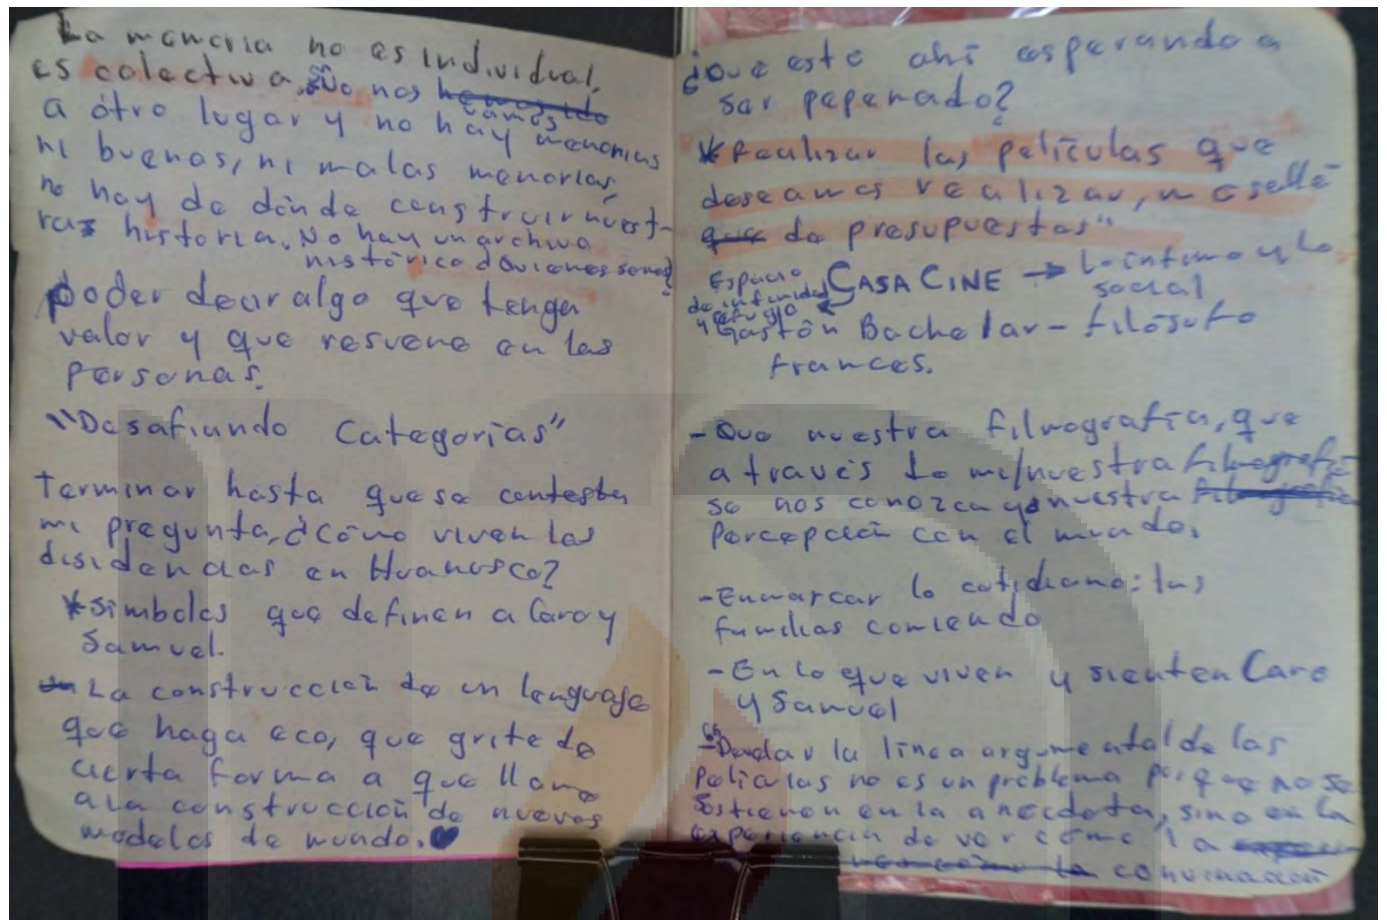 La memoria no es individual,
es colectiva, si no nos hemos ido
vamos
a otro lugar y no hay memorias
ni buenas, ni malas memorias,
no hay de dónde construir nuest-
ras historia. No hay un archivo
histórico ¿Quienes somos?
poder decir algo que tenga
valor y que resuene en las
personas.
"Desafiando Categorías"
Terminar hasta que se contesten
mi pregunta, ¿cómo viven las
disidencias en Huanusco?
*símbolos que definen a Caro y
Samuel.
La construcción de un lenguaje
que haga eco, que grite de
cierta forma a que llame
a la construcción de nuevos
modelos de mundo.
¿Qué esta ahí esperando a
ser pepenado?
*Realizar las películas que
deseamos realizar, no
que de presupuestos"
Espacio
de intimidad
y refugio
CASA CINE → Lo íntimo y lo
social
Gastón Bachelar - filósofo
frances.
-Que nuestra filmografía, que
a través de mi/nuestra filmografía
se nos conozca y nuestra filmografía
percepción con el mundo.
-Enmarcar lo cotidiano: las
familias comiendo
-En lo que viven y sienten Caro
y Samuel
la línea argumental de las
películas no es un problema porque no se
sostienen en la anecdota, sino en la
experiencia de ver cómo la
ves cómo la convinación